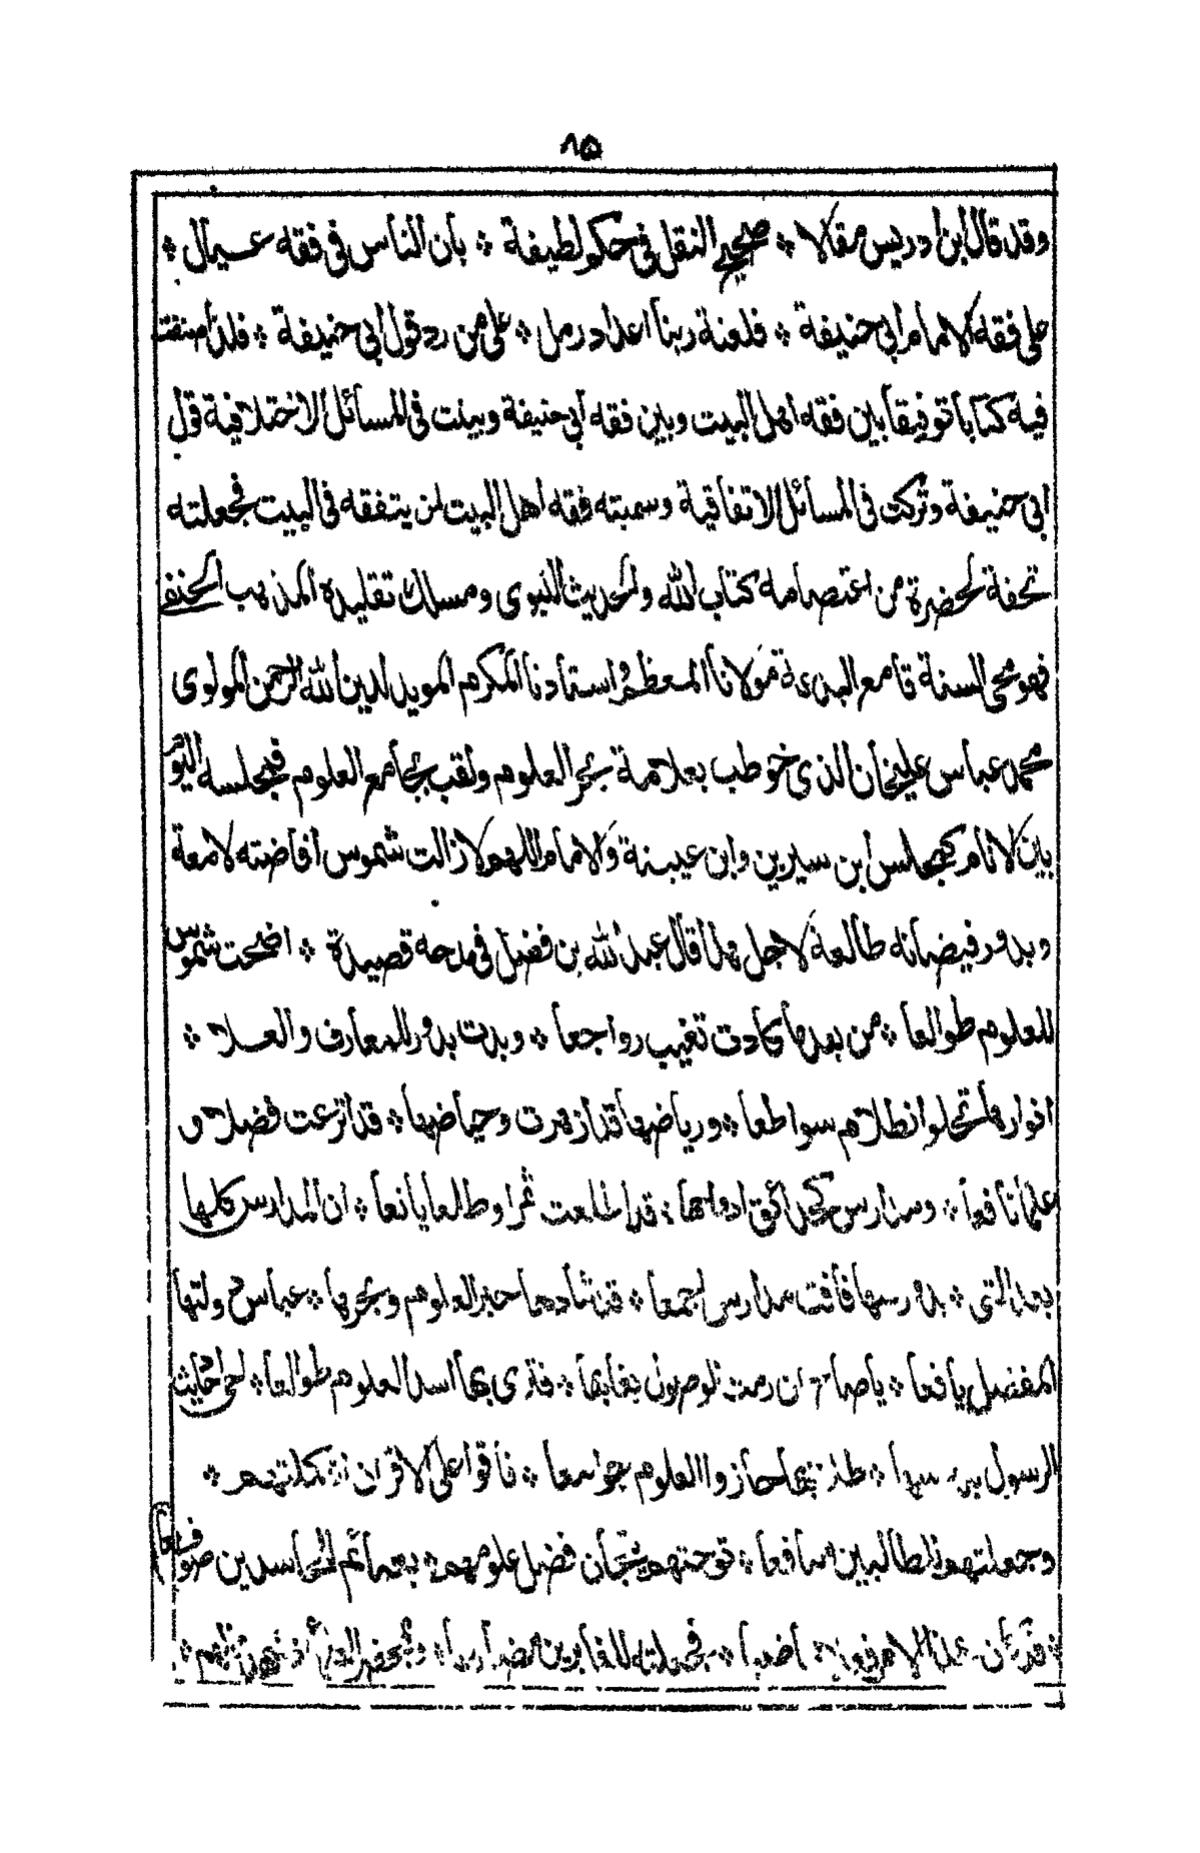 ٨٥
وقد قال ابن ادريس مقالا * صحيح النقل فى حكم لطيفة * بأن الناس فى فقه عيال *
على فقه الامام ابى حنيفة * فلعنة ربنا اعداد رمل * على من رد قول ابى حنيفة * فلذا صنفت
فيه كتابا توفيقا بين فقه اهل البيت وبين فقه ابى حنيفة وبينت فى المسائل الاختلافية قول
ابى حنيفة وتركت فى المسائل الاتفاقية وسميته فقه اهل البيت لمن يتفقه فى البيت فجعلته
تحفة لحضرة من اعتصامه كتاب الله والحديث النبوى ومسلك تقليده المذهب الحنفى
فهو محى السنة قامع البدعة مولانا المعظم واستاذنا المكرم المويد لدين الله الرحمن المولوى
محمد عباس عليخان الذى خوطب بعلامة بحر العلوم ولقب بجامع العلوم فمجلسه اليوم
بين الانام كمجلس ابن سيرين وابن عيينة والامام اللهم لازالت شموس افاضته لامعة
وبدور فيضانه طالعة لاجل هذا قال عبد الله بن فضل فى مدحه قصيدة * اضحت شموس
للعلوم طوالعا * من بعدما كادت تغيب رواجعا * وبدت بدور للمعارف والعلا *
انوارها تجلو الظلام سواطعا * ورياضها قد ازهرت وحياضها * قد اترعت فضلا
علما نافعا * ومدارس قد اطلعت ثمرا وطلعا يانعا * ان المدارس كلها
بعد التى * بدرسها فاقت مدارس اجمعا * قد شادها حبر العلوم وبحرها * عباس ولتها
المفضل يافعا * ان رمت بقابها * فترى بها اسد العلوم طوالعا *
الرسول * حازوا العلوم جوامعا * فاقوا على الاقران *
وجعلتهم للطالبين منافعا * توجتهم تيجان فضل علومهم * بعمائم للحاسدين